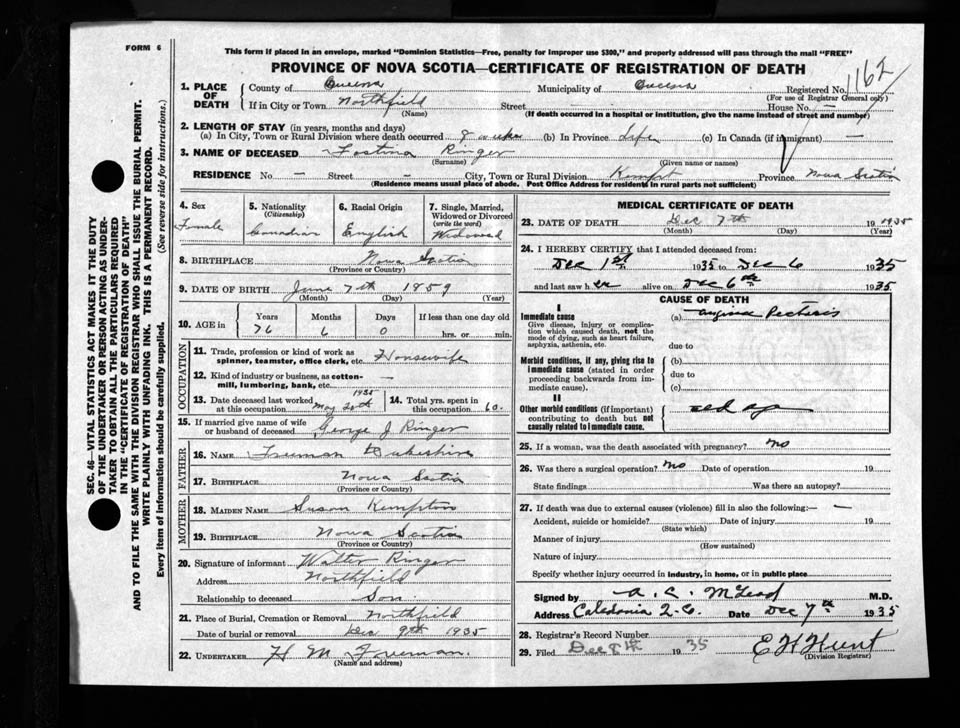 FORM 6
This form if placed in an envelope, marked "Dominion Statistics—Free, penalty for improper use $300," and properly addressed will pass through the mail "FREE"
PROVINCE OF NOVA SCOTIA—CERTIFICATE OF REGISTRATION OF DEATH
1. PLACE OF DEATH County of Queens Municipality of Queens Registered No. 1162
(For use of Registrar General only)
If in City or Town Northfield Street — House No. —
(Name) (If death occurred in a hospital or institution, give the name instead of street and number)
2. LENGTH OF STAY (in years, months and days)
(a) In City, Town or Rural Division where death occurred 8 weeks (b) In Province Life (c) In Canada (if immigrant) —
3. NAME OF DECEASED Fostina Ringer
(Surname) (Given name or names)
RESIDENCE No — Street — City, Town or Rural Division Kempt Province Nova Scotia
(Residence means usual place of abode. Post Office Address for residents in rural parts not sufficient)
4. Sex Female
5. Nationality (Citizenship) Canadian
6. Racial Origin English
7. Single, Married, Widowed or Divorced (write the word) Widowed
8. BIRTHPLACE Nova Scotia
(Province or Country)
9. DATE OF BIRTH June 7th 1859
(Month) (Day) (Year)
10. AGE in Years 76 Months 6 Days 0 If less than one day old hrs. or min.
OCCUPATION
11. Trade, profession or kind of work as spinner, teamster, office clerk, etc. Housewife
12. Kind of industry or business, as cotton-mill, lumbering, bank, etc. —
13. Date deceased last worked at this occupation May 20th 1935
14. Total yrs. spent in this occupation 60
15. If married give name of wife or husband of deceased George J Ringer
FATHER
16. NAME Freeman Dukeshire
17. BIRTHPLACE Nova Scotia
(Province or Country)
MOTHER
18. MAIDEN NAME Susan Kempton
19. BIRTHPLACE Nova Scotia
(Province or Country)
20. Signature of informant Walter Ringer
Address Northfield
Relationship to deceased Son
21. Place of Burial, Cremation or Removal Northfield
Date of burial or removal Dec 9th 1935
22. UNDERTAKER H M Freeman.
(Name and address)
MEDICAL CERTIFICATE OF DEATH
23. DATE OF DEATH Dec 7th 19 1935
(Month) (Day) (Year)
24. I HEREBY CERTIFY that I attended deceased from:
Dec 1st 1935 to Dec 6 1935
and last saw her alive on Dec 6th 1935
CAUSE OF DEATH
I
Immediate cause (a) Angina Pectoris
Give disease, injury or complication which caused death, not the mode of dying, such as heart failure, asphyxia, asthenia, etc.
due to
Morbid conditions, if any, giving rise to immediate cause (stated in order proceeding backwards from immediate cause).
(b)
due to
(c)
II
Other morbid conditions (if important) contributing to death but not causally related to immediate cause.
old age
25. If a woman, was the death associated with pregnancy? No
26. Was there a surgical operation? No Date of operation 19
State findings Was there an autopsy?
27. If death was due to external causes (violence) fill in also the following:— —
Accident, suicide or homicide? Date of injury 19
(State which)
Manner of injury
(How sustained)
Nature of injury
Specify whether injury occurred in industry, in home, or in public place
Signed by A. C. McLeod M.D.
Address Caledonia Q. Co. Date Dec 7th 1935
28. Registrar's Record Number
29. Filed Dec 8th 1935 E H Hunt
(Division Registrar)
SEC. 46—VITAL STATISTICS ACT MAKES IT THE DUTY
OF THE UNDERTAKER OR PERSON ACTING AS UNDER-
TAKER TO OBTAIN ALL THE PARTICULARS REQUIRED
IN THE "CERTIFICATE OF REGISTRATION OF DEATH"
AND TO FILE THE SAME WITH THE DIVISION REGISTRAR WHO SHALL ISSUE THE BURIAL PERMIT.
WRITE PLAINLY WITH UNFADING INK. THIS IS A PERMANENT RECORD.
Every item of information should be carefully supplied. (See reverse side for instructions.)